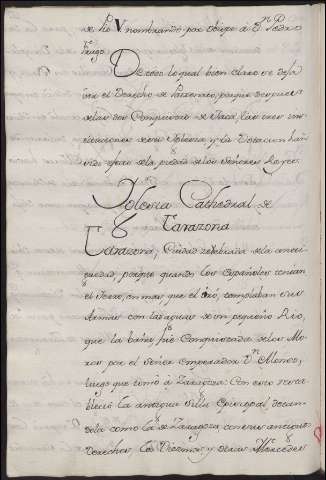 nombrando por Obispo á Dn Pedro
De todo lo qual bien claro se deja
ver el Derecho de Patronato, porque despues
de las dos Conquistas de Jaca, las tres
de su Yglesia y la Dotacion han
sido efecto de la piedad de los Señores Reyes.
Yglesia Cathedral de
Tarazona
Tarazona, Ciudad celebrada de la anti
guedad, porque quando los Españoles tenian
el Fierro, en mas que el oro, templaban sus
Armas con las aguas de un pequeño Rio,
que la baña, fue Conquistada de los Mo
ros por el Señor emperador Dn Alonso,
luego que tomó á Zaragoza: Con esto resta
bleció la antigua Silla Episcopal, dotan
dola como la de Zaragoza, con sus antiguos
derechos, los Diezmos y demas